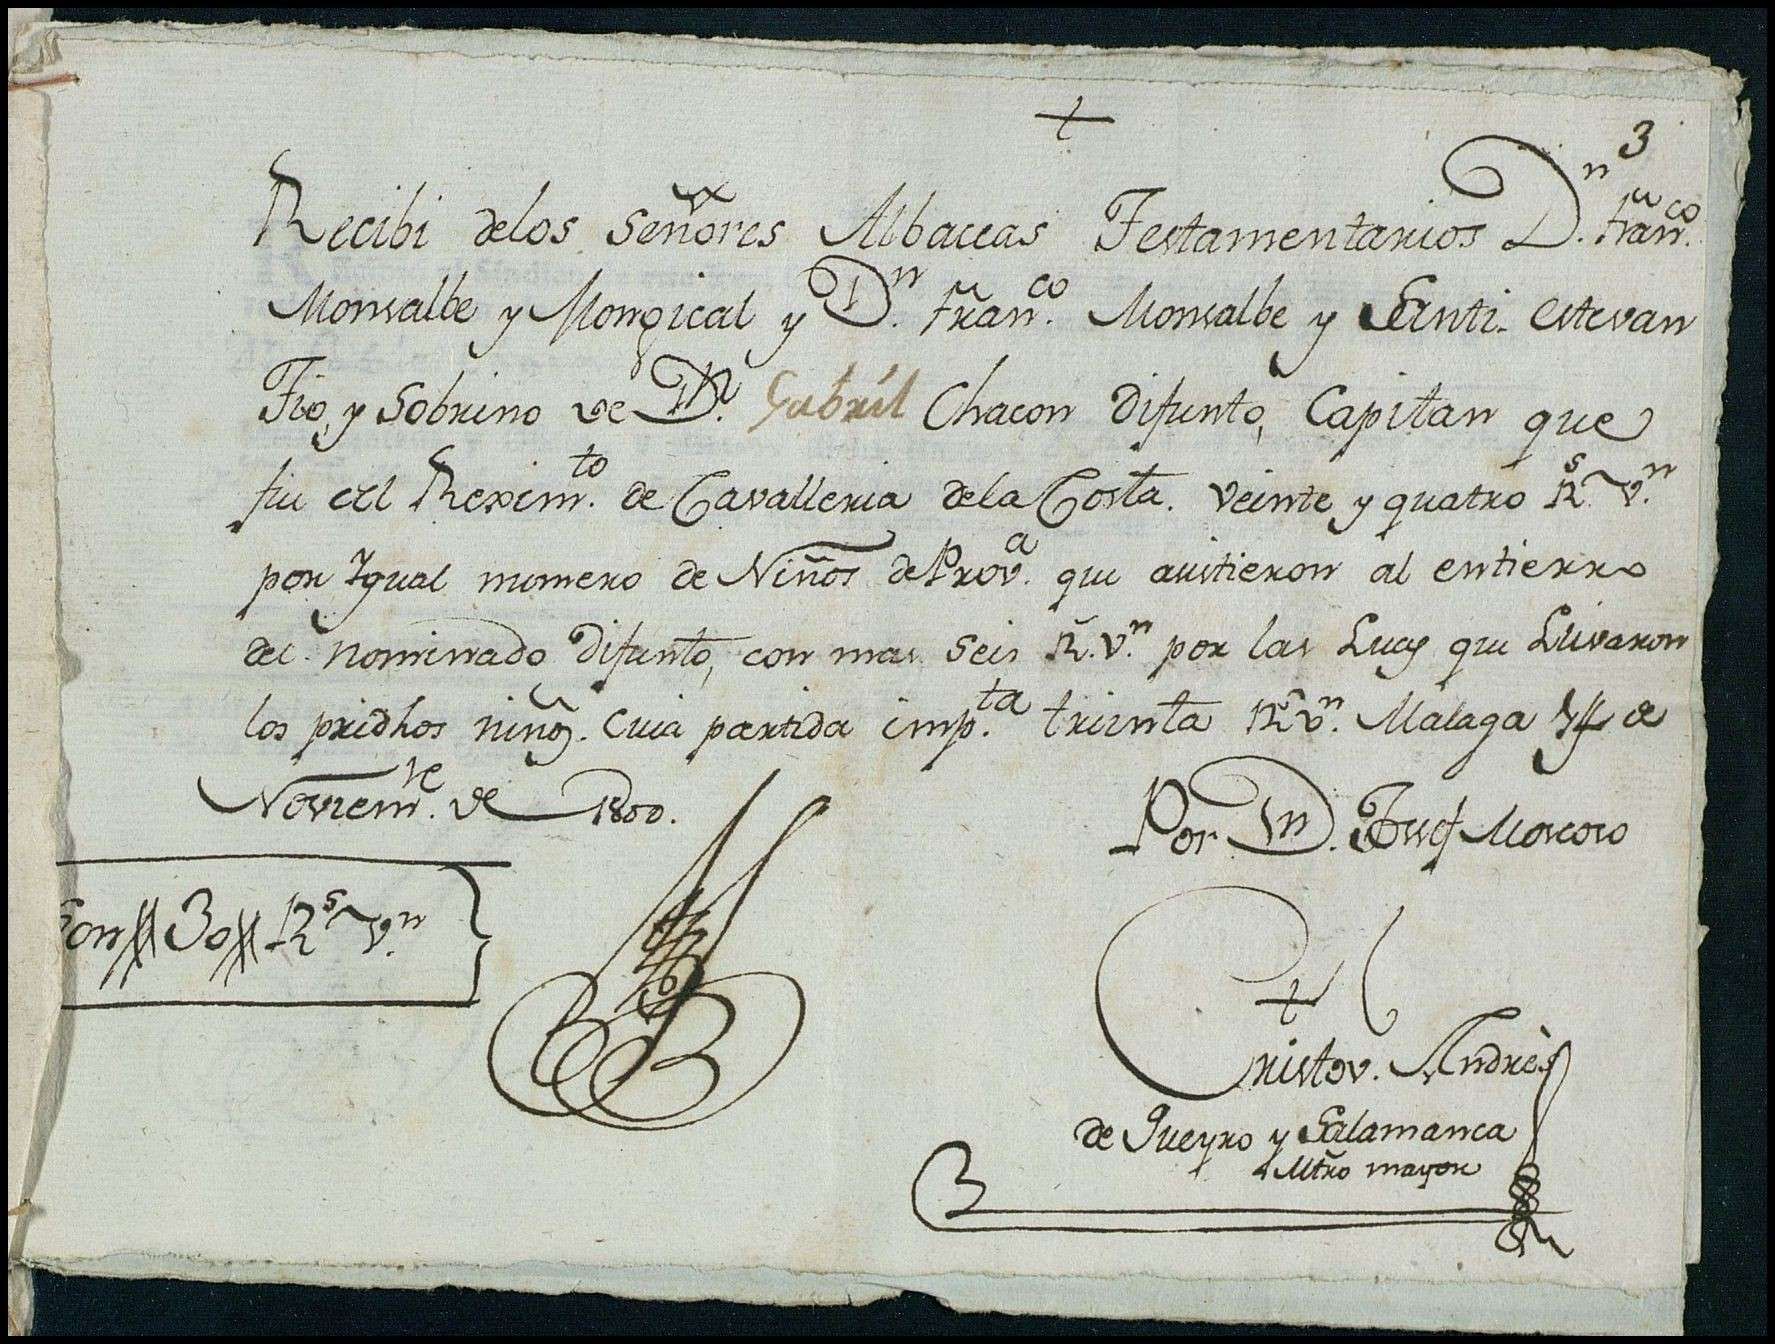 3
Recibi delos Señores Albaceas Testamentarios Dn. Franco.
Monsalbe y Mongical y Dn. Franco. Monsalbe y Santi-estevan
Tio, y Sobrino de Dn. Gabriel Chacon difunto, Capitan que
fue del Reximto. de Cavalleria dela Costa. veinte y quatro Rs vn.
por Igual numero de Niños de Prova. que asistieron al entierro
del nominado difunto, con mas seis R. vn. por las Luces que Llivaron
los pridhos niños. Cuia partida impta. trienta Rs vn. Malaga 14 de
Noviemre. de 1800.
Por Dn. Josef Moscoso
Son 30 Rs vn.
Cristov. Andrès
de Queyro y Salamanca
Mtro mayor